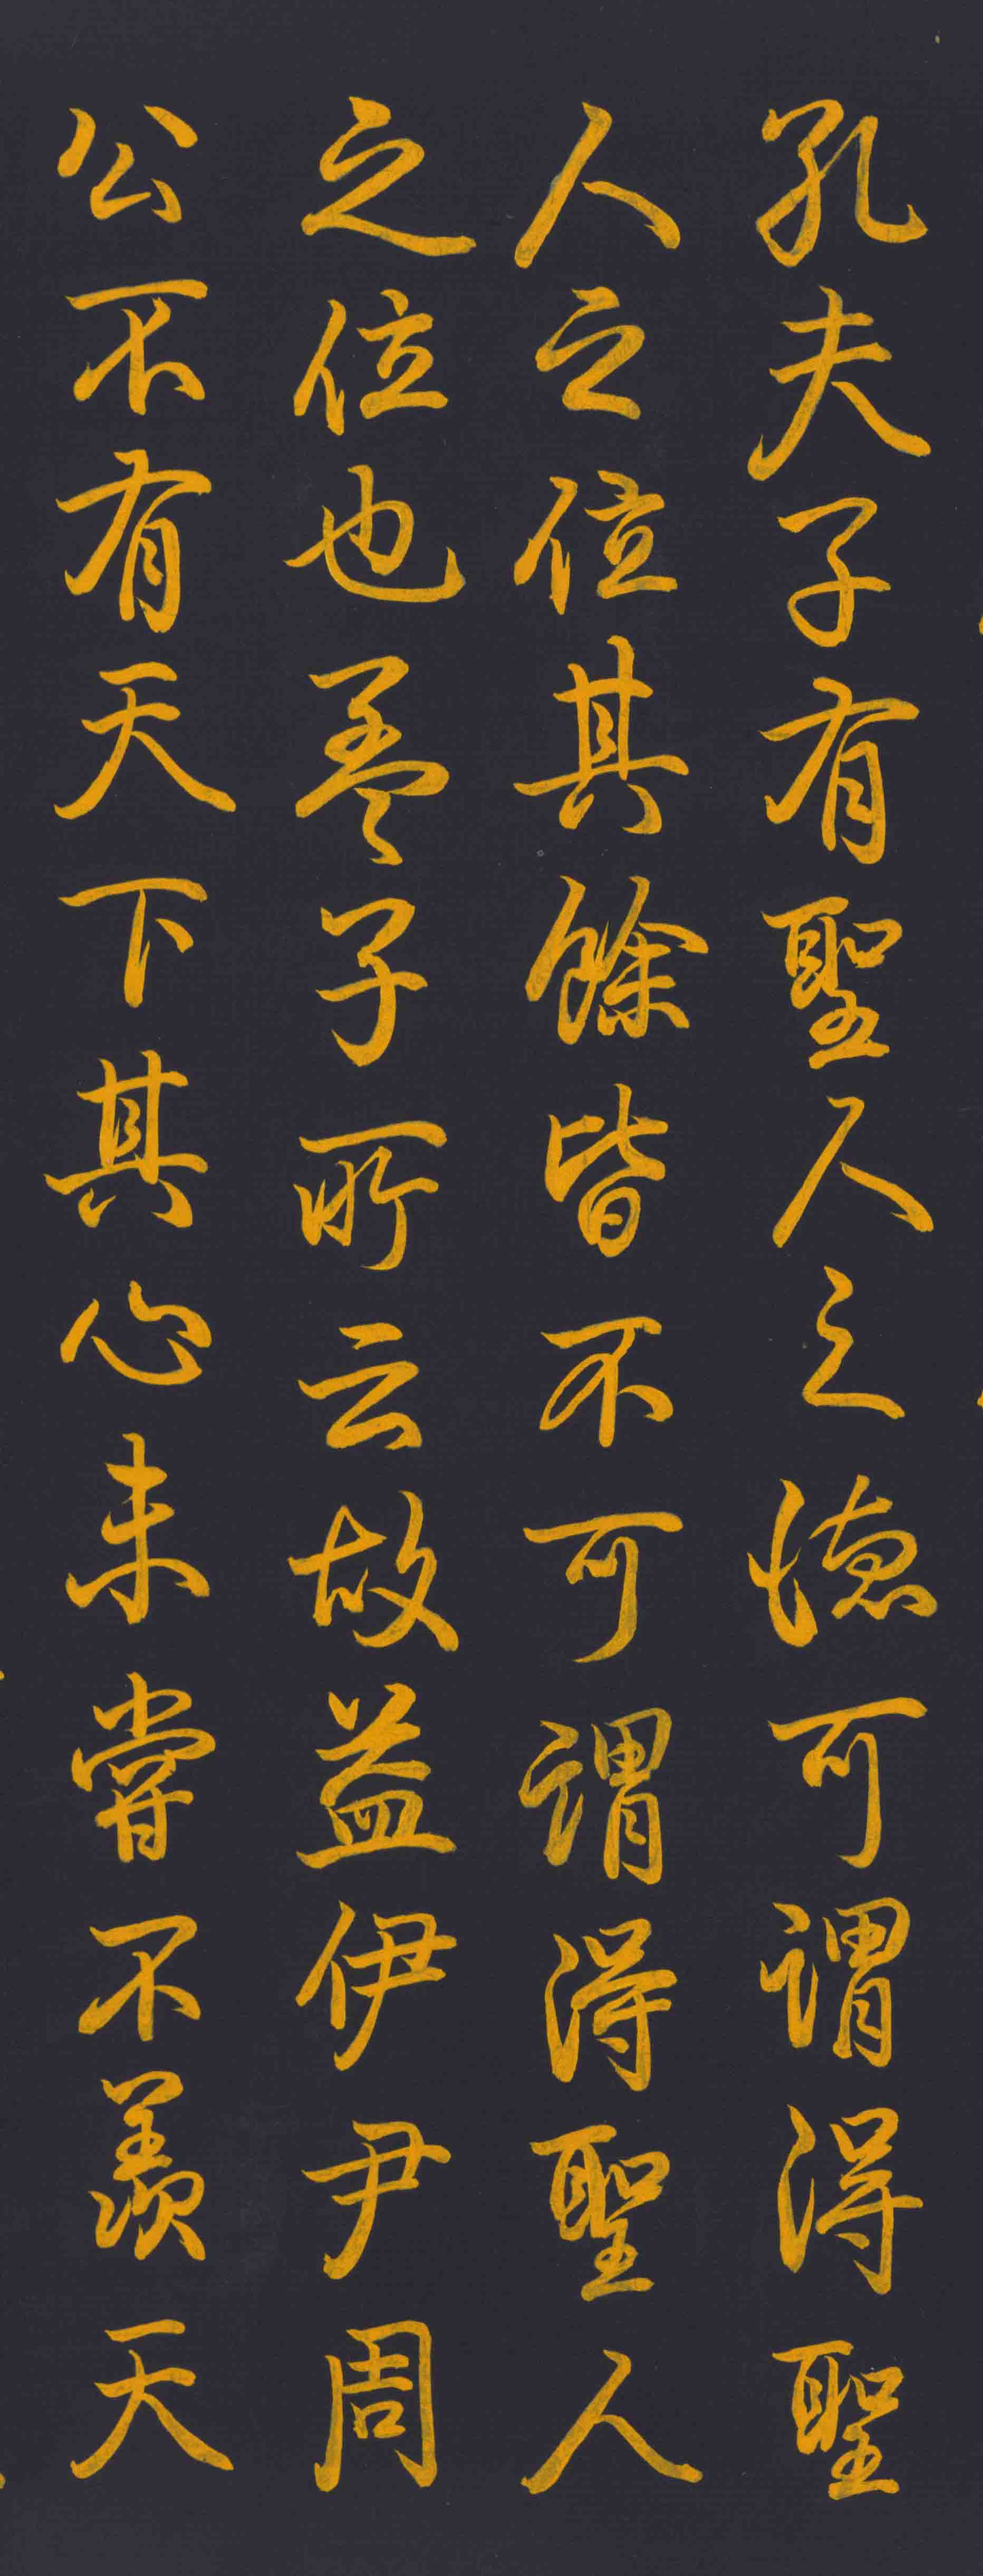 孔夫子有聖人之德可謂得聖
人之位其餘皆不可謂得聖人
之位也孟子所云故益伊尹周
公不有天下其心未嘗不羨天